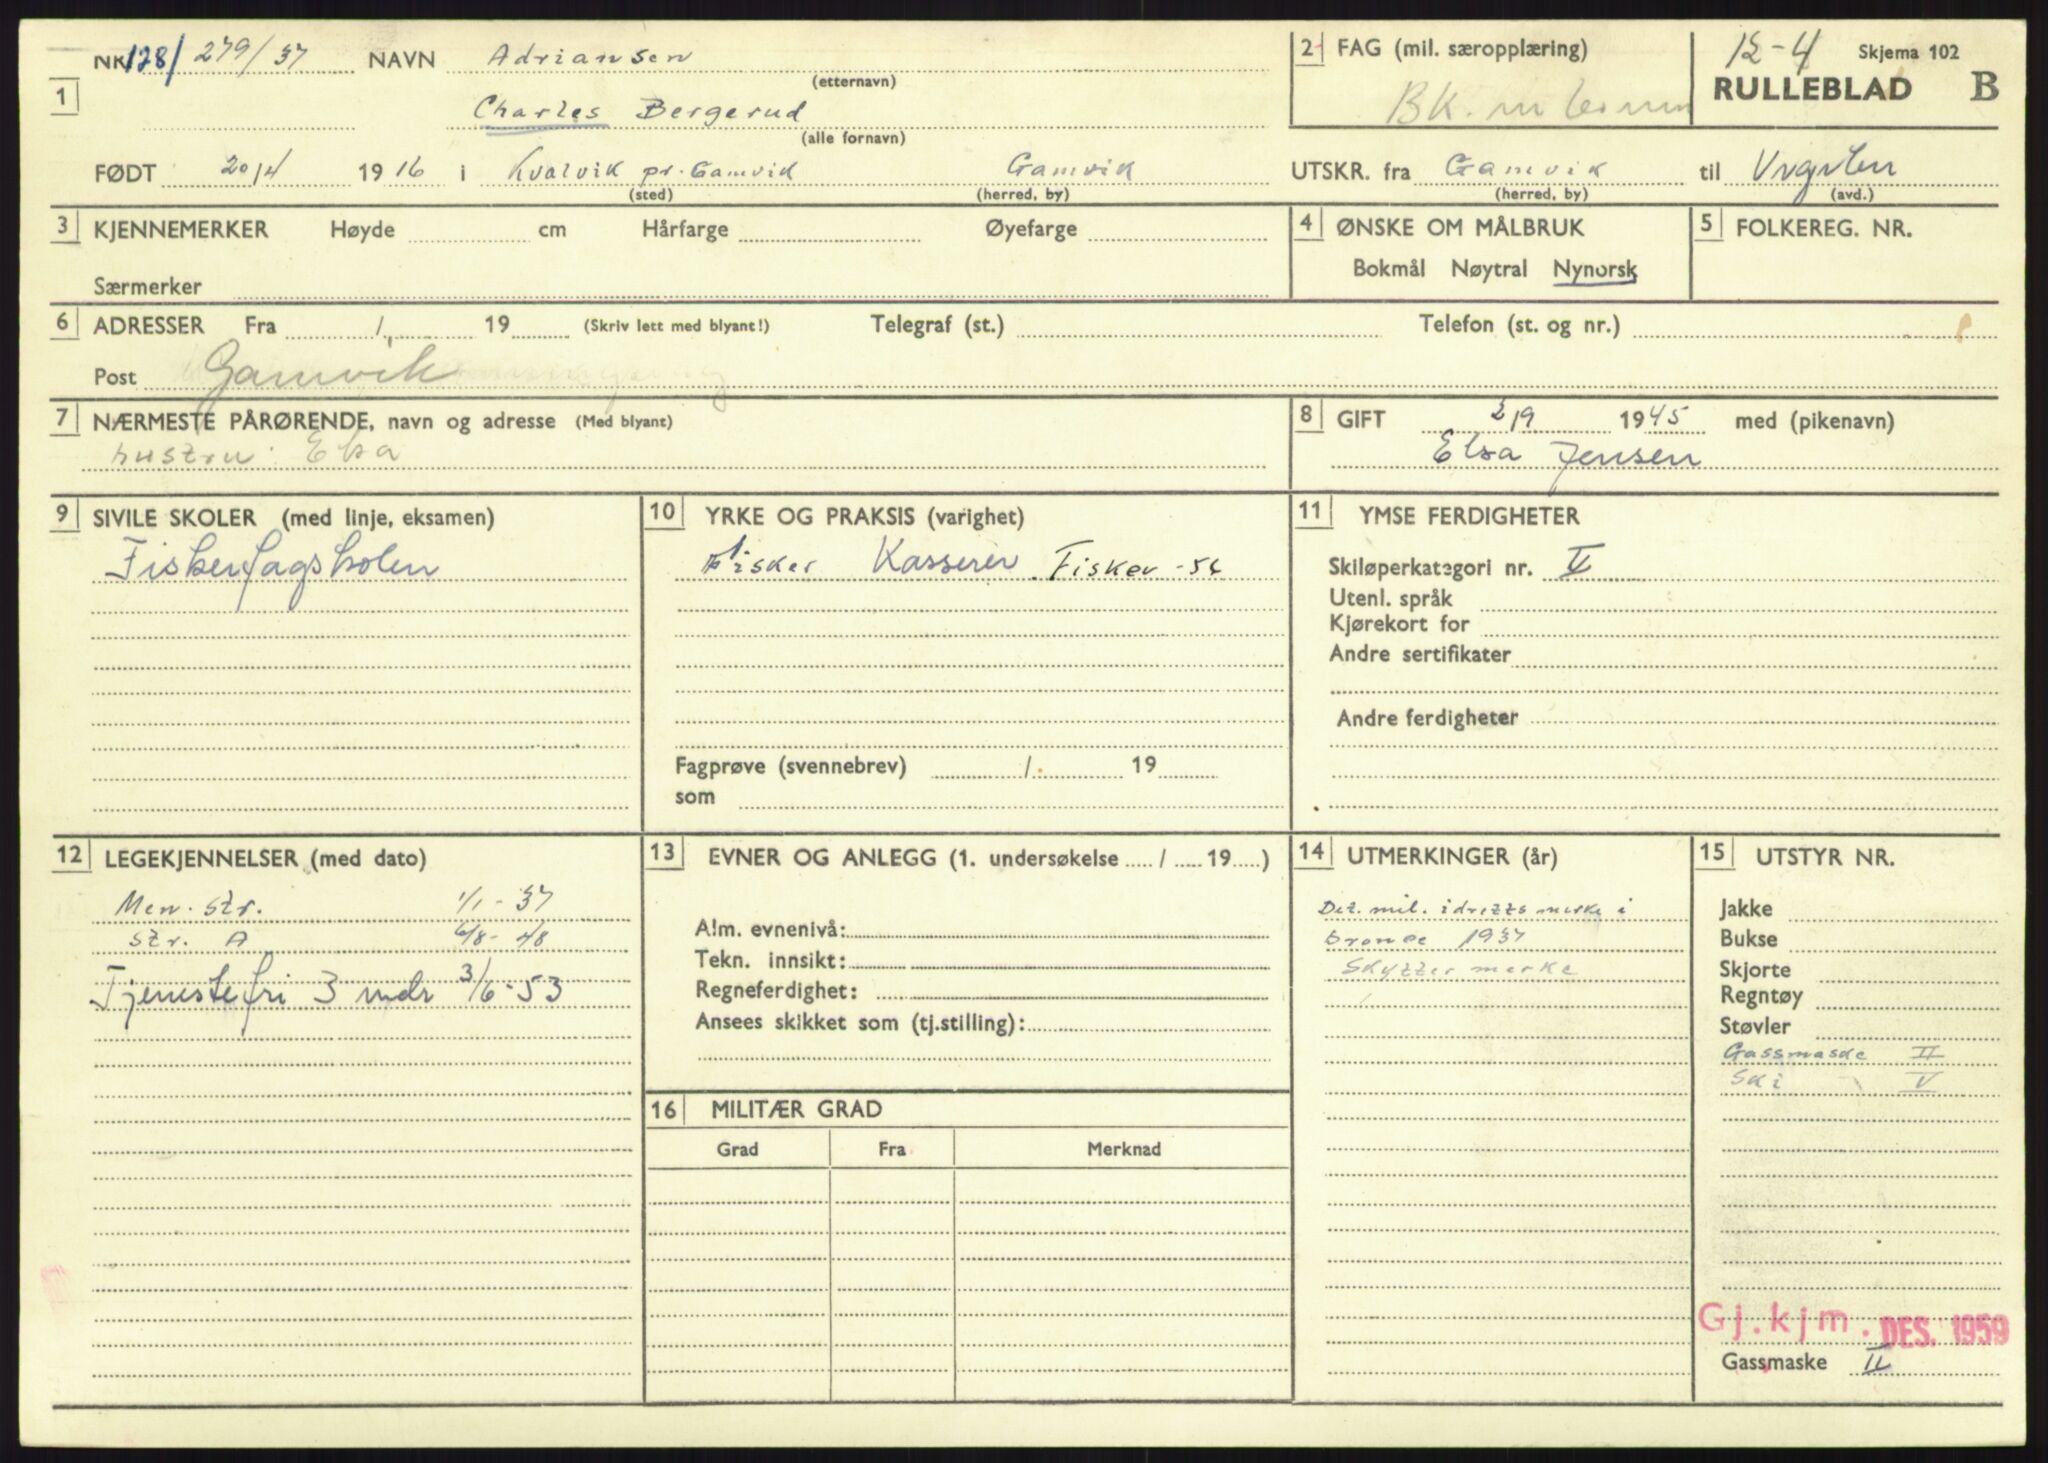 NR. 128/ 279/37 NAVN Adriansen
(etternavn)
1 Charles Bergerud
(alle fornavn)
FØDT 20/4 1916 i Kvalvik pr. Gamvik Gamvik
(sted) (herred, by)
2 FAG (mil. særopplæring)
BK.
12-4 Skjema 102
RULLEBLAD B
UTSKR. fra Gamvik til
(herred, by) (avd.)
3 KJENNEMERKER Høyde cm Hårfarge Øyefarge
Særmerker
4 ØNSKE OM MÅLBRUK
Bokmål Nøytral Nynorsk
5 FOLKEREG. NR.
6 ADRESSER Fra / 19 (Skriv lett med blyant!) Telegraf (st.) Telefon (st. og nr.)
Post Gamvik
7 NÆRMESTE PÅRØRENDE, navn og adresse (Med blyant)
hustru: Elsa
8 GIFT 2/9 1945 med (pikenavn)
Elsa Jensen
9 SIVILE SKOLER (med linje, eksamen)
Fiskerfagskolen
10 YRKE OG PRAKSIS (varighet)
Fisker Kasserer Fisker -56
Fagprøve (svennebrev) / 19
som
11 YMSE FERDIGHETER
Skiløperkategori nr. V
Utenl. språk
Kjørekort for
Andre sertifikater
Andre ferdigheter
12 LEGEKJENNELSER (med dato)
Men. str. 1/1-37
str. A 6/8-48
Tjenestefri 3 mdr 3/6-53
13 EVNER OG ANLEGG (1. undersøkelse / 19 )
Alm. evnenivå:
Tekn. innsikt:
Regneferdighet:
Ansees skikket som (tj.stilling):
16 MILITÆR GRAD
Grad Fra Merknad
14 UTMERKINGER (år)
Det. mil. idrettsmerke i
bronse 1937
Skyttermerke
15 UTSTYR NR.
Jakke
Bukse
Skjorte
Regntøy
Støvler
Gassmaske II
Ski V
Gj.kjm. DES. 1959
Gassmaske II